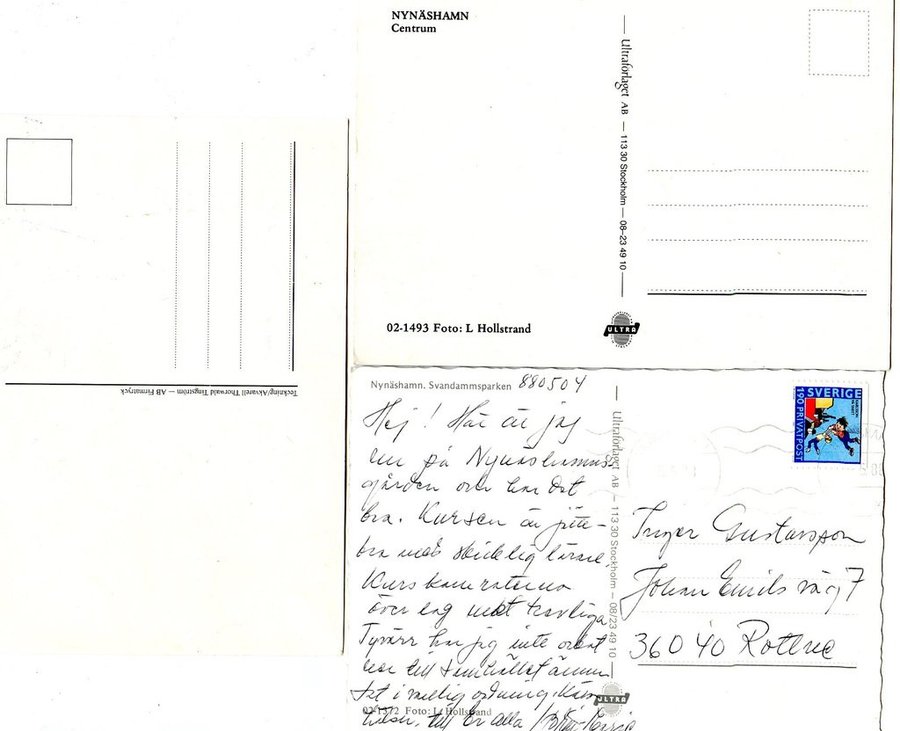 NYNÄSHAMN
Centrum
Ultraförlaget AB — 113 30 Stockholm — 08-23 49 10
02-1493 Foto: L Hollstrand
ULTRA
Teckning/Akvarell Thorwald Tingström — AB Firmatryck
Nynäshamn. Svandammsparken
880504
Hej! Här är jag
nu på Nynäshamns
gården och har det
bra. Kursen är jätte-
bra med skicklig lärare.
Kurskamraterna
över lag mkt trevliga
Tyvärr har jag inte orkat
ner till samhället ännu
Allt i vanlig ordning.
till Er alla
02-1572 Foto: L Hollstrand
Ultraförlaget AB — 113 30 Stockholm — 08/23 49 10
ULTRA
SVERIGE
190 PRIVATPOST
Inger Gustavsson
Johan Emils väg 7
360 40 Rottne